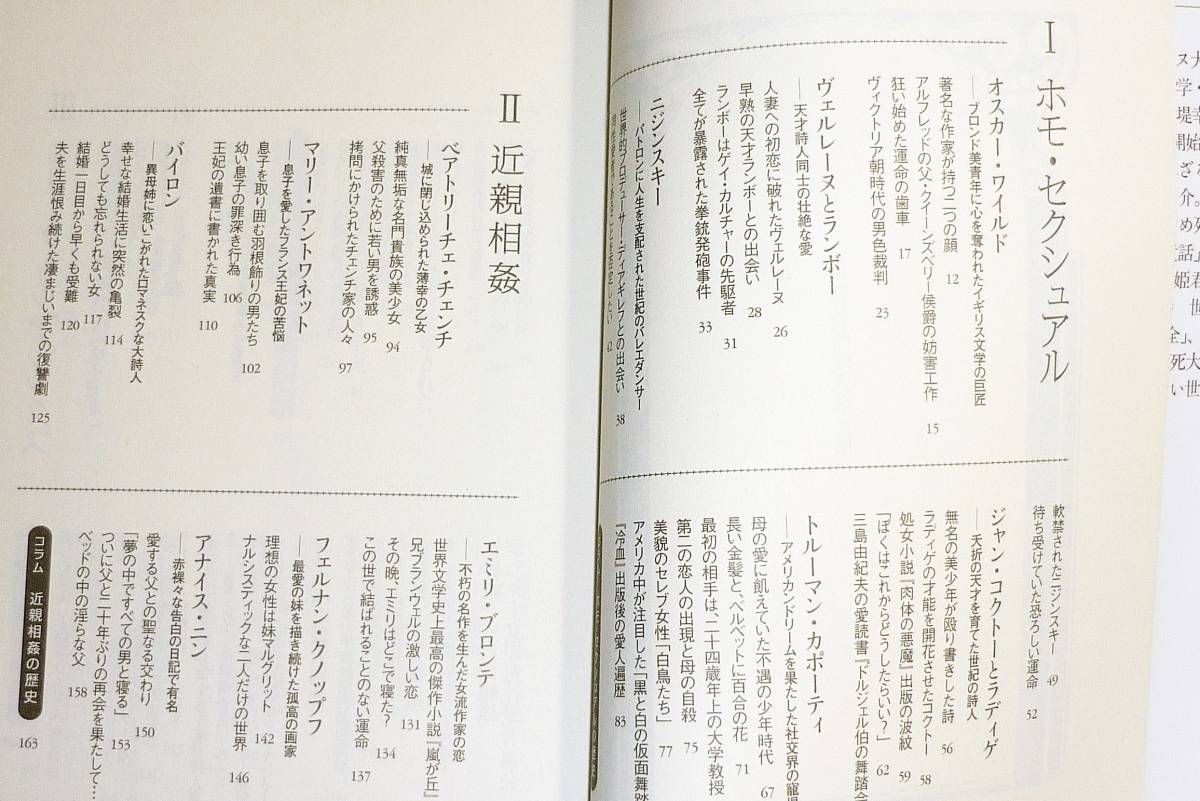 I ホモ・セクシュアル
オスカー・ワイルド
――ブロンド美青年に心を奪われたイギリス文学の巨匠
著名な作家が持つ二つの顔 12
アルフレッドの父・クイーンズベリー侯爵の妨害工作 15
狂い始めた運命の歯車 17
ヴィクトリア朝時代の男色裁判 23
ヴェルレーヌとランボー
――天才詩人同士の壮絶な愛
人妻への初恋に破れたヴェルレーヌ 26
早熟の天才ランボーとの出会い 28
ランボーはゲイ・カルチャーの先駆者 31
全てが暴露された拳銃発砲事件 33
ニジンスキー
――パトロンに人生を支配された世紀のバレエダンサー
世界的プロデューサー・ディアギレフとの出会い 38
42
軟禁されたニジンスキー 49
待ち受けていた恐ろしい運命 52
ジャン・コクトーとラディゲ
――夭折の天才を育てた世紀の詩人
無名の美少年が殴り書きした詩 56
ラディゲの才能を開花させたコクトー 58
処女小説『肉体の悪魔』出版の波紋 59
「ぼくはこれからどうしたらいい？」 62
三島由紀夫の愛読書『ドルジェル伯の舞踏会
トルーマン・カポーティ
――アメリカンドリームを果たした社交界の寵児
母の愛に飢えていた不遇の少年時代 67
長い金髪と、ベルベットに百合の花 71
最初の相手は、二十四歳年上の大学教授
第二の恋人の出現と母の自殺 75
美貌のセレブ女性「白鳥たち」 77
アメリカ中が注目した「黒と白の仮面舞踏
『冷血』出版後の愛人遍歴 83
II 近親相姦
ベアトリーチェ・チェンチ
――城に閉じ込められた薄幸の乙女
純真無垢な名門貴族の美少女 94
父殺害のために若い男を誘惑 95
拷問にかけられたチェンチ家の人々 97
マリー・アントワネット
――息子を愛したフランス王妃の苦悩
息子を取り囲む羽根飾りの男たち 102
幼い息子の罪深き行為 106
王妃の遺書に書かれた真実 110
バイロン
――異母姉に恋いこがれたロマネスクな大詩人
幸せな結婚生活に突然の亀裂 114
どうしても忘れられない女 117
結婚一日目から早くも受難 120
夫を生涯恨み続けた凄まじいまでの復讐劇 125
エミリ・ブロンテ
――不朽の名作を生んだ女流作家の恋
世界文学史上最高の傑作小説『嵐が丘』
兄ブランウェルの激しい恋 131
その晩、エミリはどこで寝た？ 134
この世で結ばれることのない運命 137
フェルナン・クノップフ
――最愛の妹を描き続けた孤高の画家
理想の女性は妹マルグリット 142
ナルシスティックな二人だけの世界 146
アナイス・ニン
――赤裸々な告白の日記で有名
愛する父との聖なる交わり 150
「夢の中ですべての男と寝る」 153
ついに父と二十年ぶりの再会を果たして…
ベッドの中の淫らな父 158
コラム 近親相姦の歴史 163